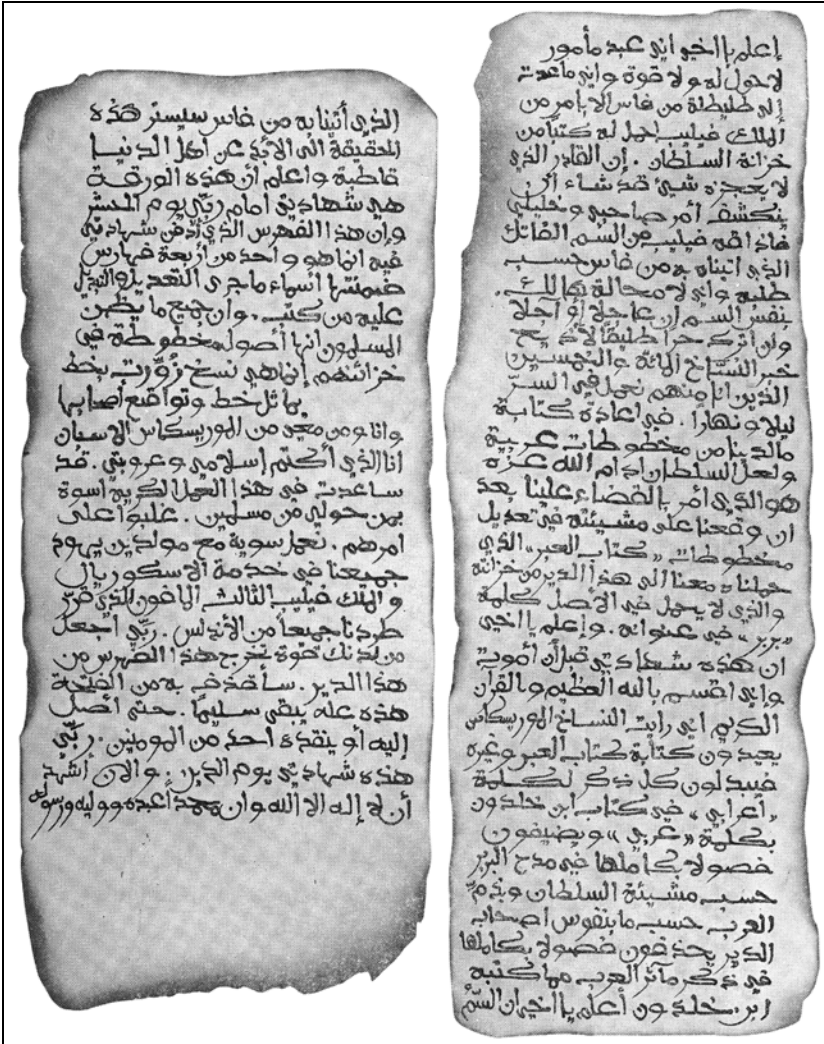 إعلم يا اخي اني عبد مأمور
لا حول له ولا قوة واني ما عدت
إلى طليطلة من فاس الا بامر من
الملك فيليب احمل له كتبًا من
خزانة السلطان . إن القادر الذي
لا يعجزه شيئ قد شاء أن
ينكشف أمر صاحبي و خليلي
فأذاقه فيليب من السم القاتل
الذي اتيناه به من فاس حسب
طلبه واني لا محالة هالك .
بنفس السم إن عاجلا أو آجلا
ولن اترك حرا طليقًا لأذيع
خبر النساخ المائة والخمسين
الذين انا منهم نعمل في السر
ليلا ونهارا . في اعادة كتابة
ما لدينا من مخطوطات عربية
ولعل السلطان ادام الله عزه
هو الذي امر بالقضاء علينا بعد
ان وقعنا على مشيئته في تعديل
مخطوطات «كتاب العبر» الذي
حملناه معنا الى هذا الدير من خزانته
والذي لا يحمل في الأصل كلمة
«بربر» في عنوانه . وإعلم يا اخي
ان هذه شهادتي قبل أن أموت
وإني اقسم بالله العظيم وبالقران
الكريم اني رايت النساخ الموريسكاس
يعيدون كتابة كتاب العبر وغيره
فيبدلون كل ذكر لكلمة
«أعرابي» في كتاب ابن خلدون
بكلمة «عربي» ويضيفون
فصولا بكاملها في مدح البربر
حسب مشيئة السلطان وبذم
العرب حسب ما بنفوس اصحاب
الدير يحذفون فصولا بكاملها
في ذكر مآثر العرب مما كتبه
ابن خلدون أعلم يا اخي ان السم
الذي أتينا به من فاس سيستر هذه
الحقيقة الى الأبد عن اهل الدنيا
قاطبة واعلم أن هذه الورقة
هي شهادتي امام ربي يوم الحشر
وإن هذا الفهرس الذي أدفن شهادتي
فيه انما هو واحد من أربعة فهارس
ضمنتها أسماء ما جرى التعديل والتبديل
عليه من كتب . وان جميع ما يظن
المسلمون انها أصول مخطوطة في
خزائنهم إنما هي نسخ زُوّرت بخط
يماثل خط وتواقيع أصحابها
وانا ومن معي من الموريسكاس الاسبان
انا الذي أكتم إسلامي وعروبتي . قد
ساعدت في هذا العمل الكريه اسوة
بمن حولي من مسلمين . غلبوا على
امرهم . نعمل سوية مع مولدين يهود
جميعنا في خدمة الاسكوريال
والملك فيليب الثالث المافون الذي قرر
طردنا جميعاً من الأندلس . ربي اجعل
من لدنك قوة تخرج هذا الفهرس من
هذا الدير . سأقذف به من الفتحة
هذه عله يبقى سليمًا . حتى أصل
إليه أو ينقذه احد من المومنين . ربي
هذه شهادتي يوم الدين . والان اشهد
أن لا إله الا الله وان محمد أعبده ووليه ورسوله